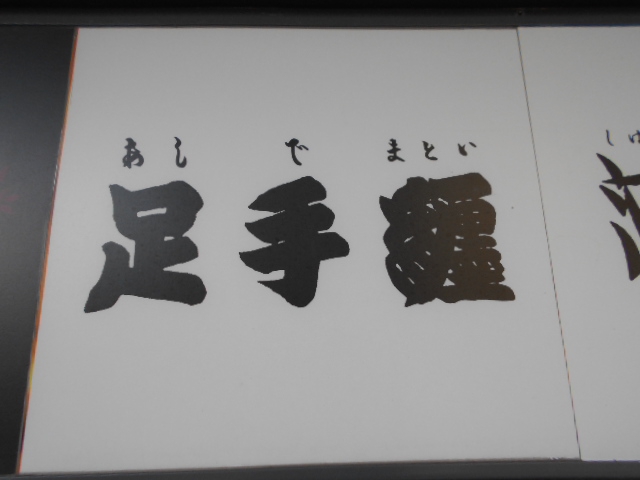 あし で まとい
足手纏
しゆ